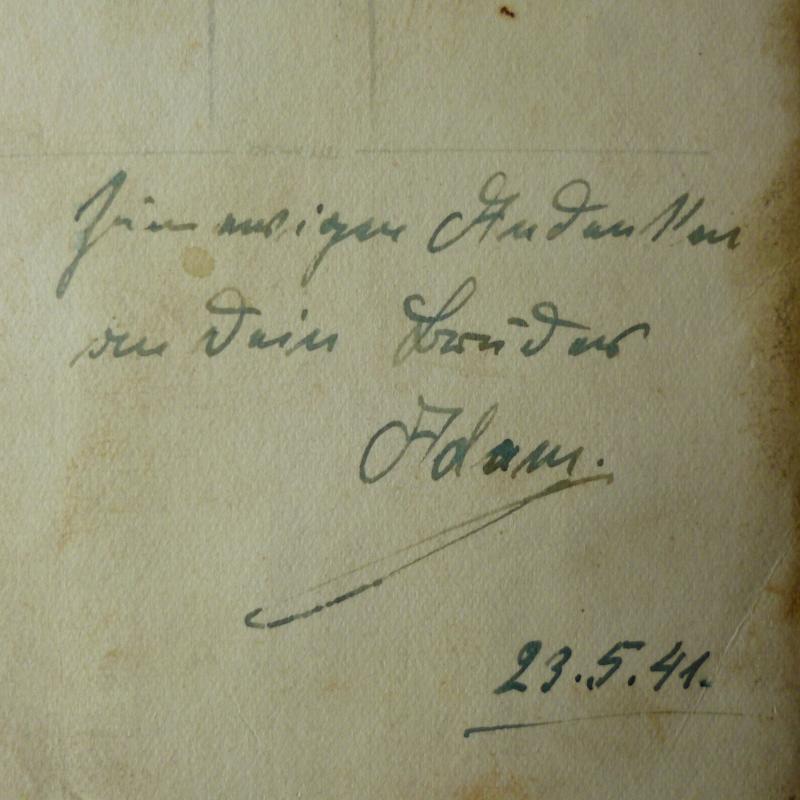 Zum ewigen Andenken
an Dein Bruder
Adam.
23.5.41.